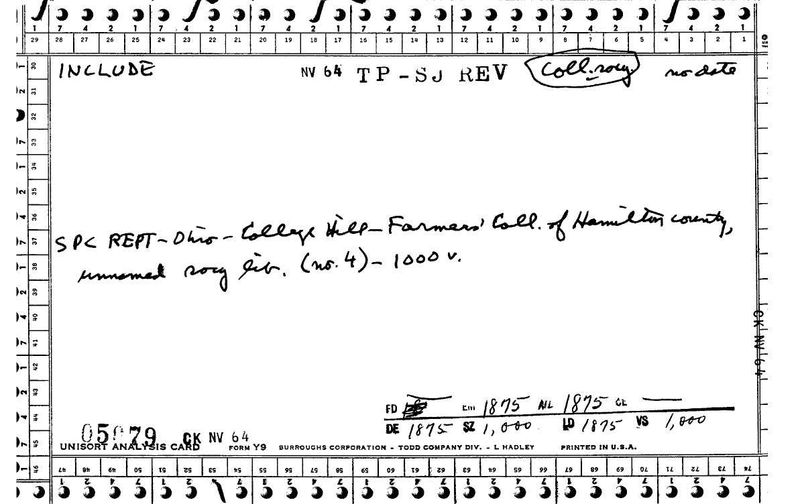 29 28 27 26 25 24 23 22 21 20 19 18 17 16 15 14 13 12 11 10 9 8 7 6 5 4 3 2 1
INCLUDE NV 64 TP-SJ REV Coll. socy no date
SPC REPT-Ohio-College Hill-Farmers' Coll. of Hamilton county,
unnamed socy lib. (no. 4)-1000 v.
FD Em 1875 AVL 1875 CL
DE 1875 SZ 1,000 LD 1875 VS 1,000
05079 CK NV 64
UNISORT ANALYSIS CARD FORM Y9 BURROUGHS CORPORATION - TODD COMPANY DIV. - L HADLEY PRINTED IN U.S.A.
CK NV 64
47 48 49 50 51 52 53 54 55 56 57 58 59 60 61 62 63 64 65 66 67 68 69 70 71 72 73 74